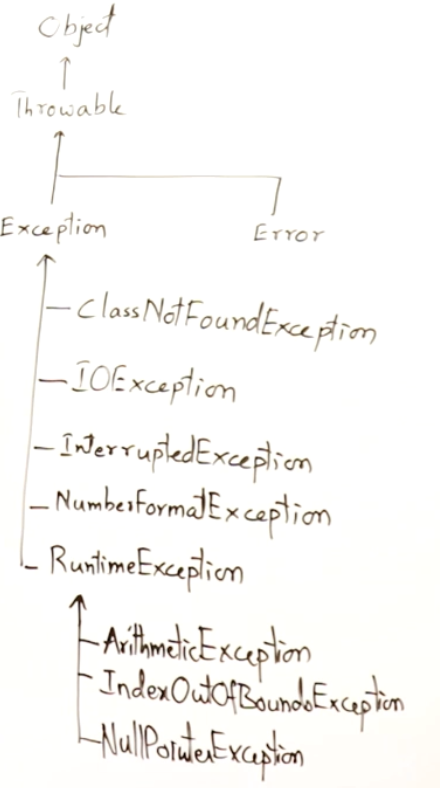 Object
Throwable
Exception
Error
ClassNotFoundException
IOException
InterruptedException
NumberFormatException
RuntimeException
ArithmeticException
IndexOutOfBoundsException
NullPointerException